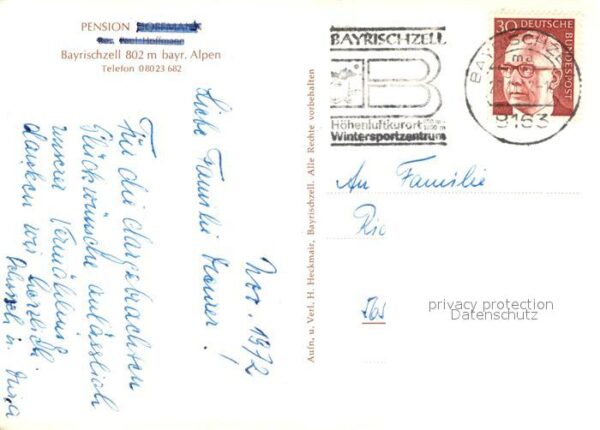 PENSION HOFFMANN
Bes. Paul Hoffmann
Bayrischzell 802 m bayr. Alpen
Telefon 08023 682
Nov. 1972
Liebe Familie
Für die dargebrachten
Glückwünsche anlässlich
unserer Vermählung
danken wir herzlich
u.
Aufn. u. Verl. H. Heckmair, Bayrischzell. Alle Rechte vorbehalten
BAYRISCHZELL
B
Höhenluftkurort
Wintersportzentrum
30 DEUTSCHE BUNDESPOST
BAYRISCHZELL
8163
An Familie
privacy protection
Datenschutz